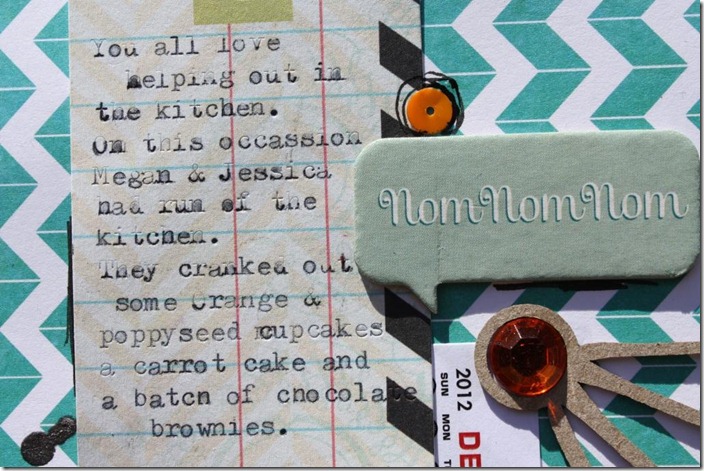 You all love
helping out in
the kitchen.
On this occassion
Megan & Jessica
had run of the
kitchen.
They cranked out
some Orange &
poppyseed cupcakes
a carrot cake and
a batch of chocolate
brownies.
NomNomNom
2012 DE
SUN MON T